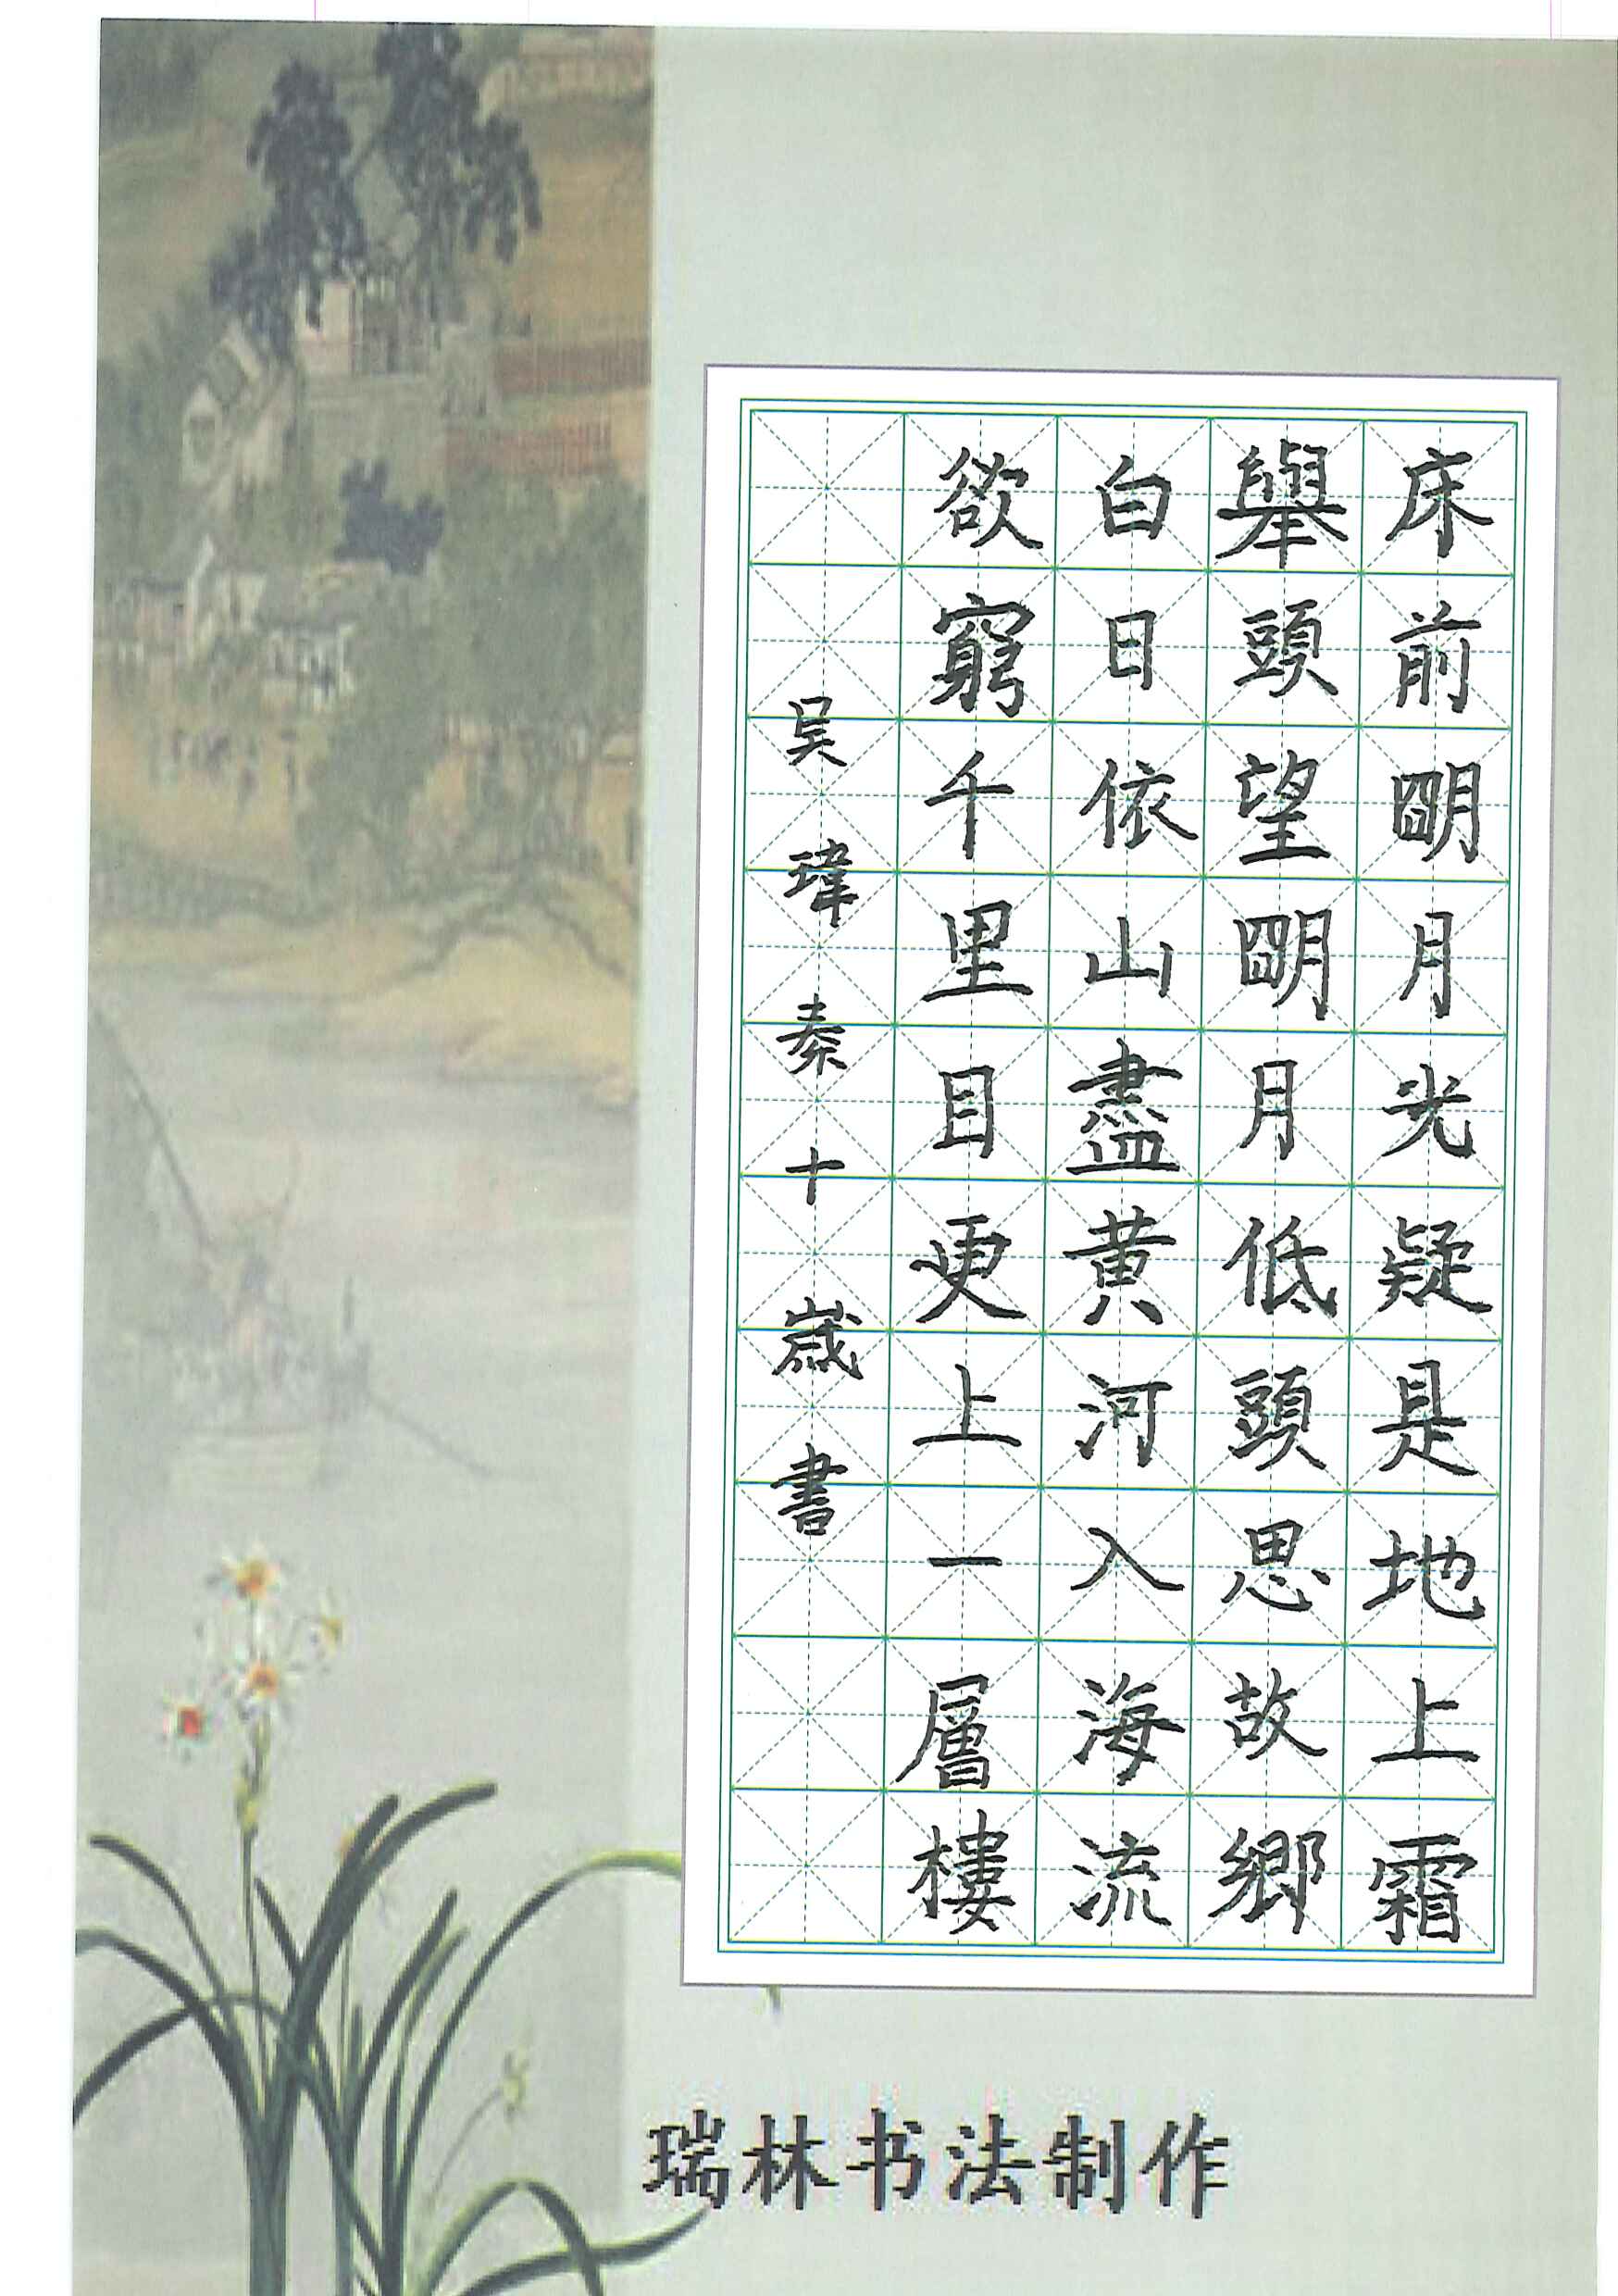 床前朙月光疑是地上霜
舉頭望朙月低頭思故鄉
白日依山盡黄河入海流
欲窮千里目更上一層樓
吴瑋秦十歲書
瑞林书法制作